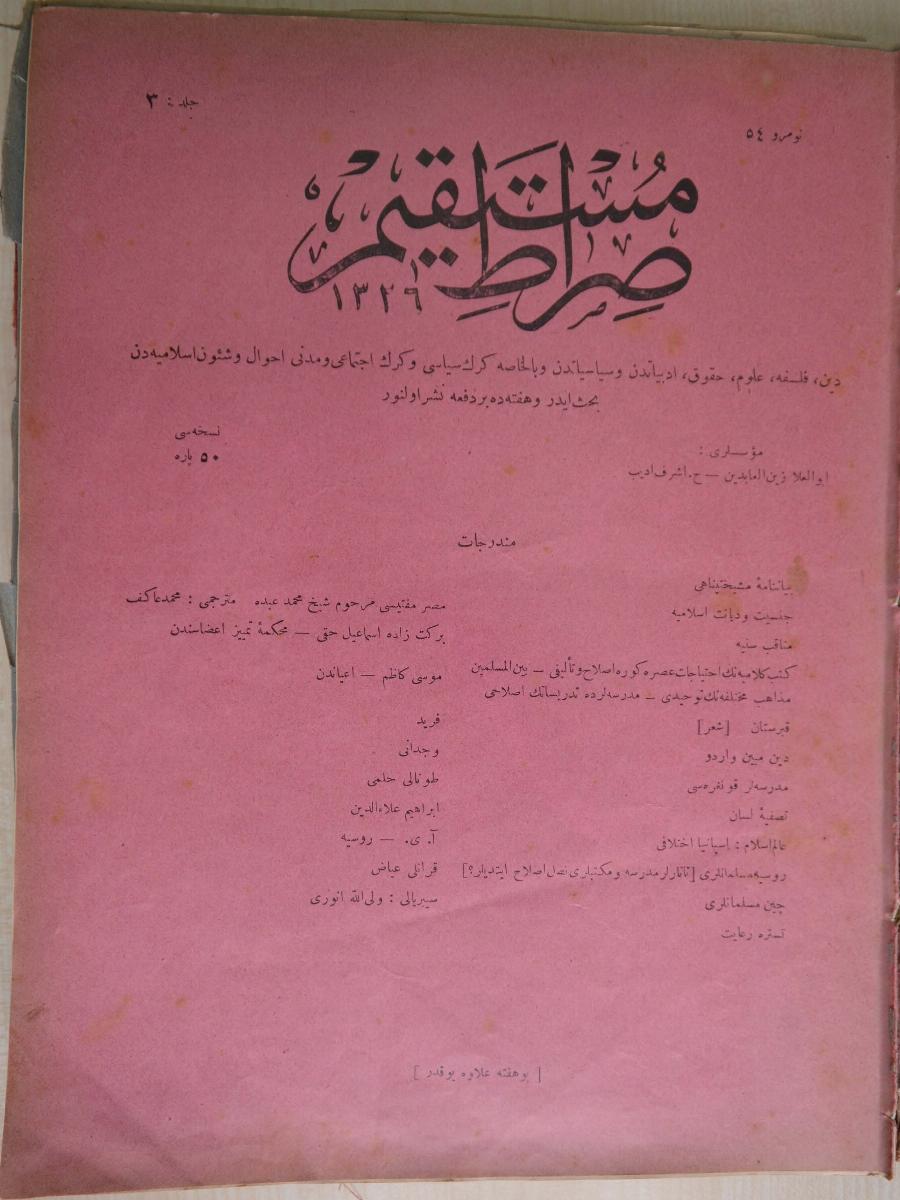 نومرو ٥٤
جلد : ٣
صِرَاطِ مُسْتَقِيم
١٣٢٦
دين، فلسفه، علوم، حقوق، ادبياتدن وسياسياتدن وبالخاصه كرك سياسى وكرك اجتماعى ومدنى احوال وشئون اسلاميه‌دن
بحث ايدر وهفته‌ده بر دفعه نشر اولنور
مؤسسلرى :
ابوالعلا زين‌العابدين — ح. اشرف اديب
نسخه‌سى
٥٠ پاره
مندرجات
بياننامهٔ مشيختپناهى
جنسيت وديانت اسلاميه    مصر مفتيسى مرحوم شيخ محمد عبده    مترجمى : محمد عاكف
مناقب سنيه    بركت زاده اسماعيل حقى — محكمهٔ تمييز اعضاسندن
كتب كلاميه‌نك احتياجات عصره كوره اصلاح وتأليفى — بين‌المسلمين
مذاهب مختلفه‌نك توحيدى — مدرسه‌لرده تدريساتك اصلاحى    موسى كاظم — اعياندن
قبرستان [شعر]    فريد
دين مبين واردو    وجدانى
مدرسه‌لر قونفره‌سى    طونالى حلمى
تصفيهٔ لسان    ابراهيم علاءالدين
عالم اسلام : اسپانيا اختلافى    آ. ى. — روسيه
روسيه مسلمانلرى [تاتارلر مدرسه ومكتبلرى نصل اصلاح ايتديلر؟]    قرانلى عياض
چين مسلمانلرى    سيبريالى : ولى‌الله انورى
تستره رعايت
[ بو هفته علاوه يوقدر ]